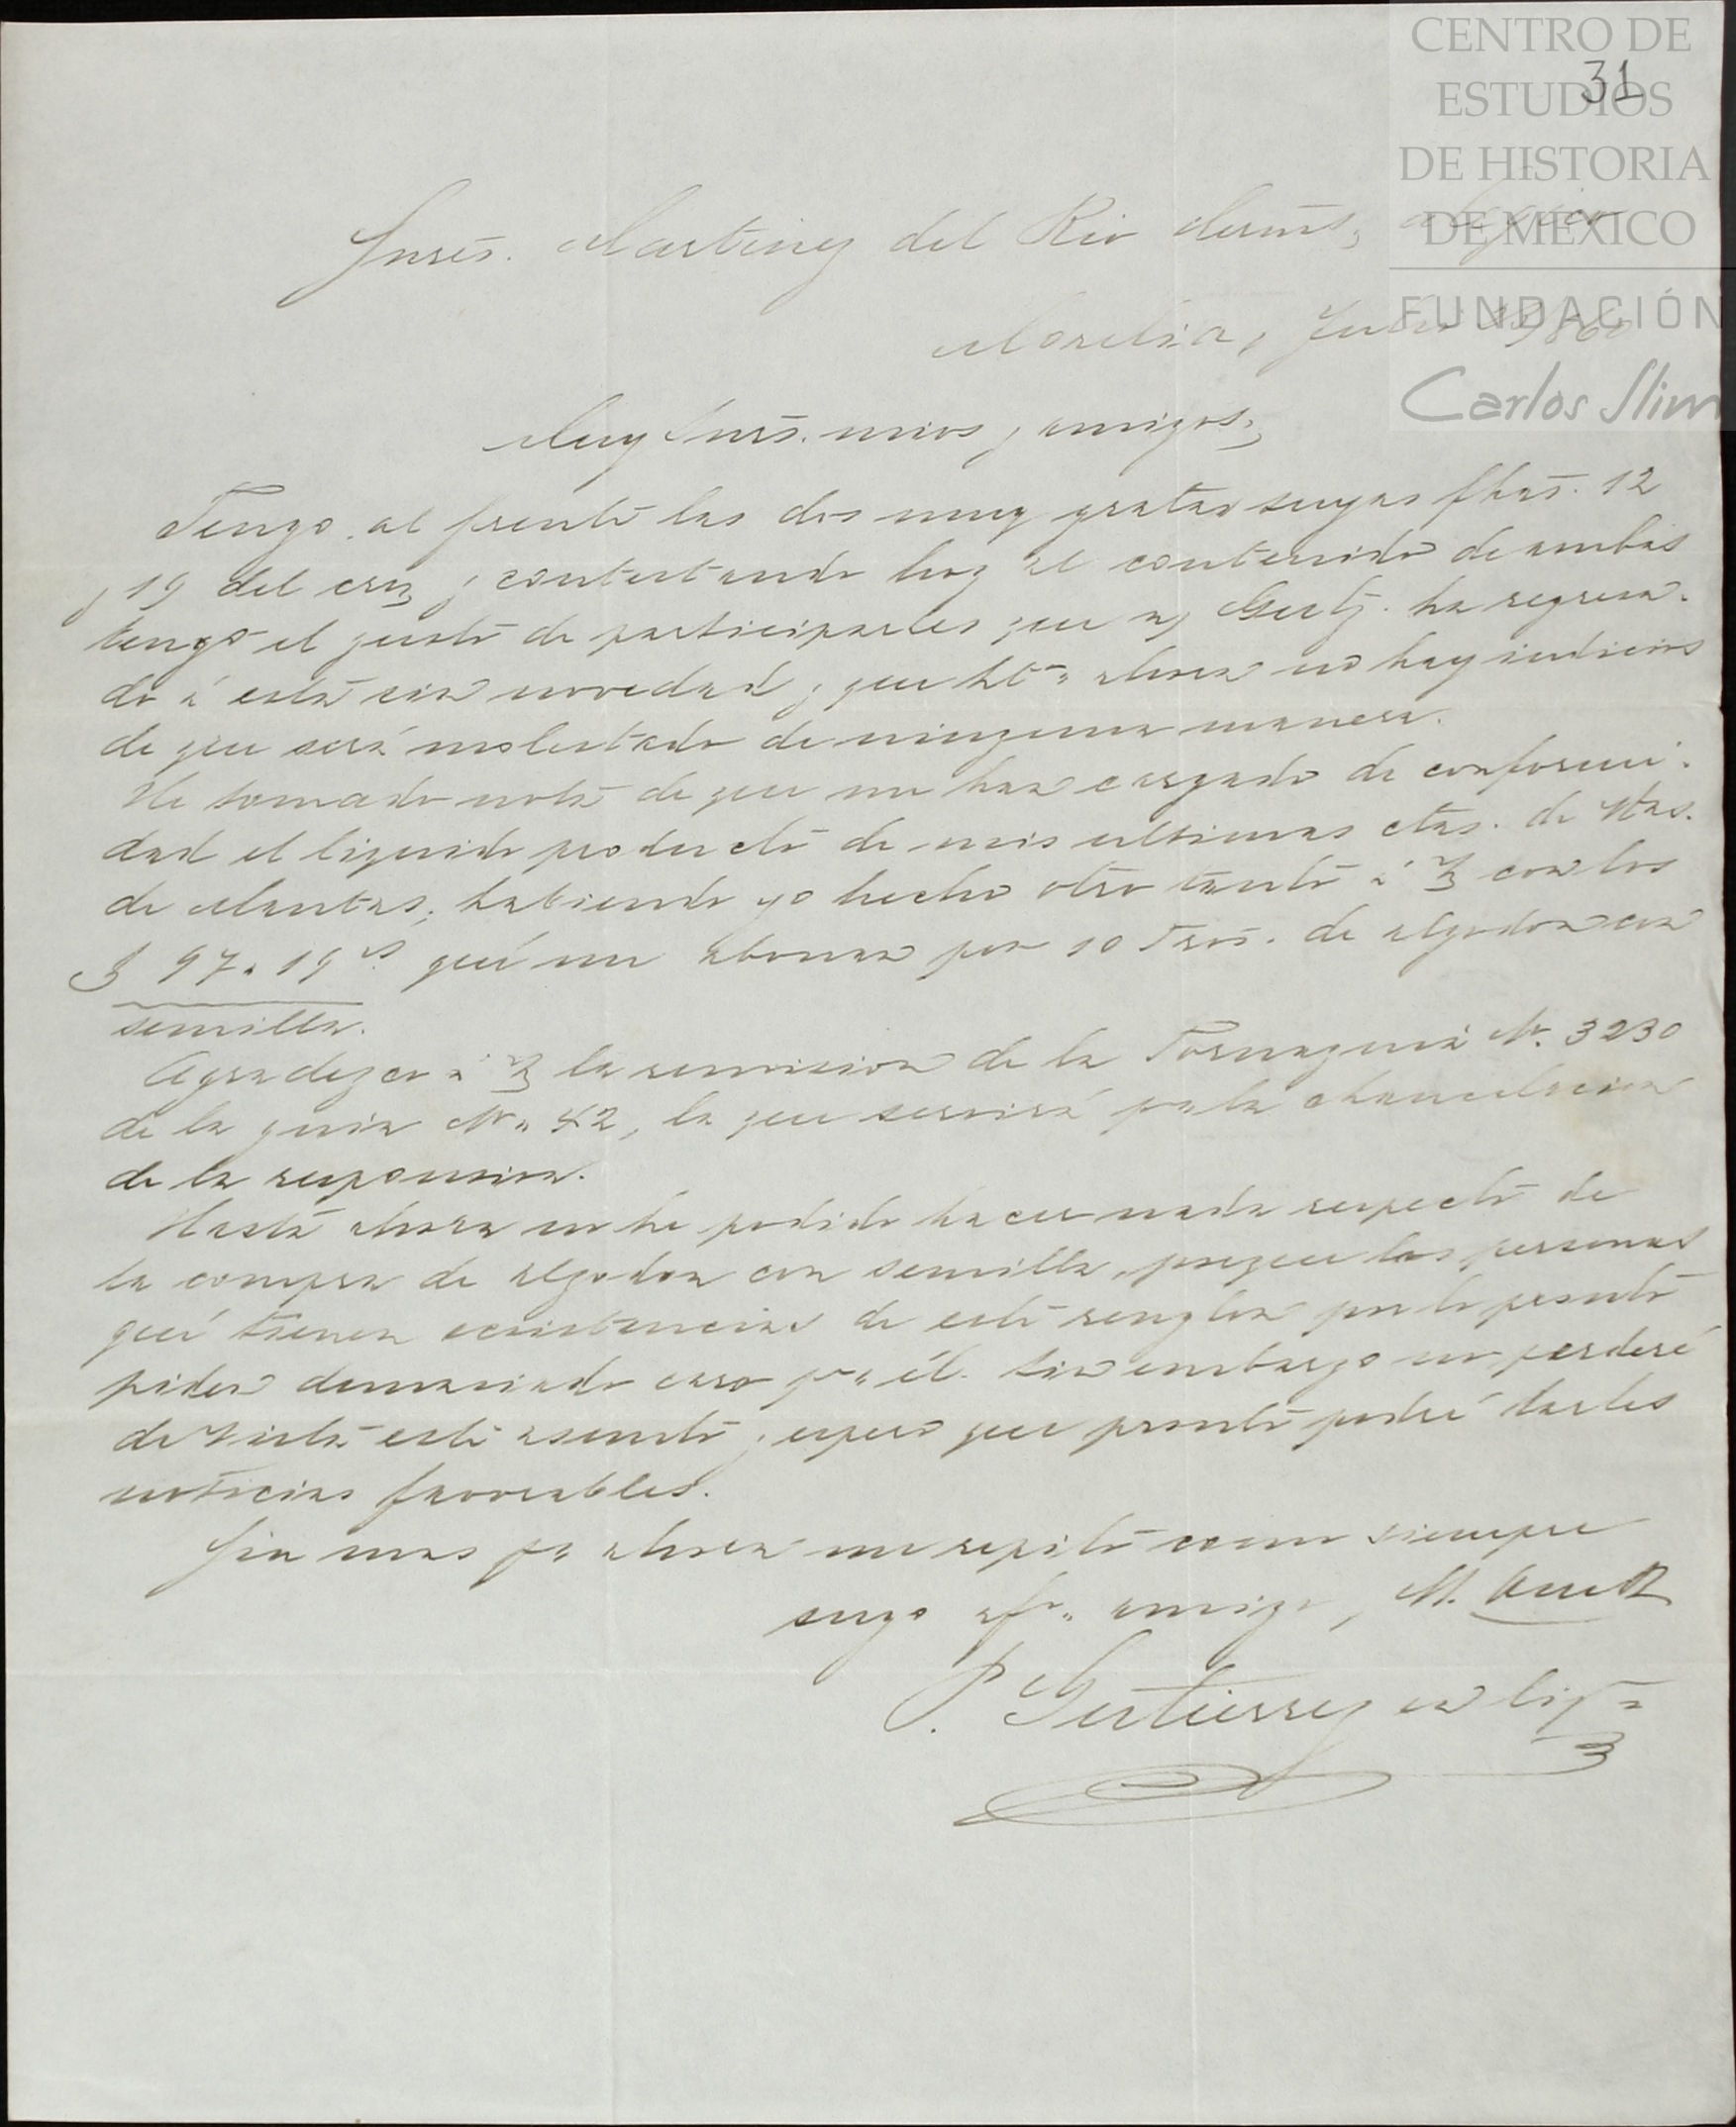 CENTRO DE
ESTUDIOS
DE HISTORIA
DE MÉXICO
FUNDACIÓN
Carlos Slim
31
Snres. Martinez del Rio Herms,
Morelia,
Muy Snres. mios y amigos;
Tengo al frente las dos muy gratas suyas fhas. 12
y 19 del y contestando hoy al contenido de ambas
tengo el gusto de participarles que ha regresa-
do á esta sin novedad y que hta ahora no hay indicios
de que será molestado de ninguna manera.
He tomado nota de que me han cargado de conformi-
dad el liquido producto de mis ultimas ctas. de Vtas.
de Mantas, habiendo yo hecho otro tanto á con los
$ 97.19 que me abonan por 10 de algodon con
semilla.
Agradezco á la remision de la Tornaguia No. 3230
de la guia No. 42, la que servirá pa la chancelacion
de la responsiva.
Hasta ahora no he podido hacer nada respecto de
la compra de algodon con semilla, porque las personas
que tienen existencias de este renglon por lo pronto
piden demasiado caro pr él. Sin embargo no perderé
de vista este asunto y espero que pronto podré darles
noticias favorables.
Sin mas pr ahora me repito como siempre
suyo afo. amigo,
P. Gutierrez en liqn